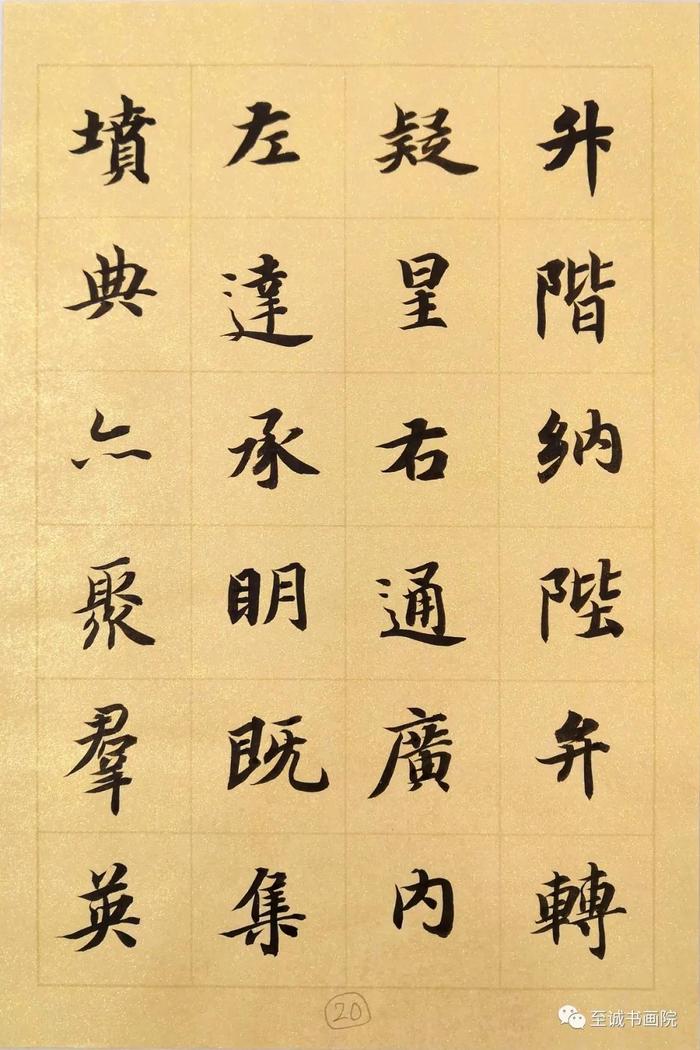 升階納陛弁轉
疑星右通廣内
左達承明既集
墳典亦聚羣英
20
至诚书画院